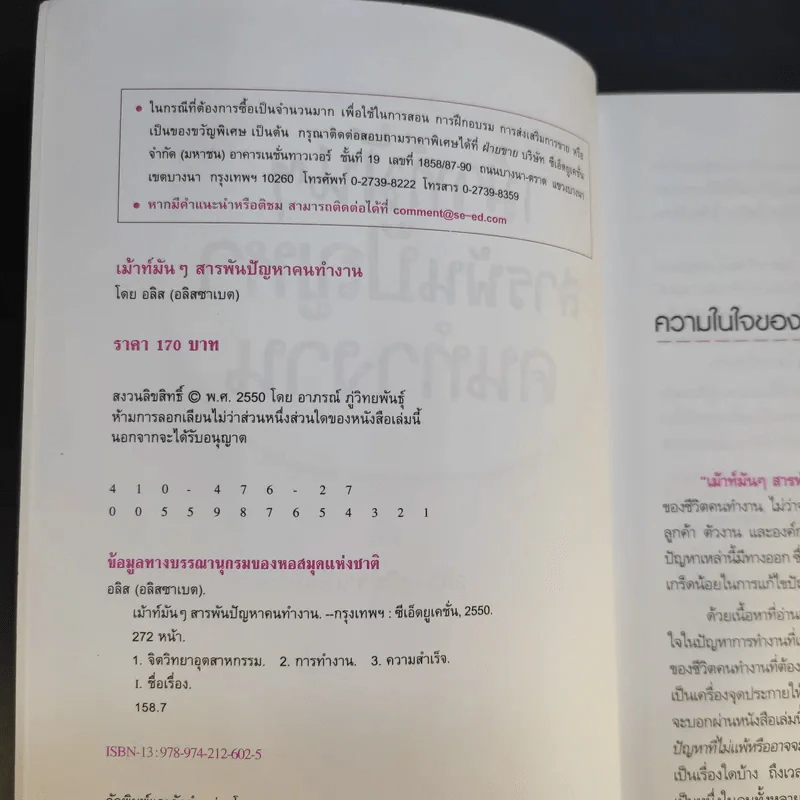 • ในกรณีที่ต้องการซื้อเป็นจำนวนมาก เพื่อใช้ในการสอน การฝึกอบรม การส่งเสริมการขาย หรือ
เป็นของขวัญพิเศษ เป็นต้น กรุณาติดต่อสอบถามราคาพิเศษได้ที่ ฝ่ายขาย บริษัท ซีเอ็ดยูเคชั่น
จำกัด (มหาชน) อาคารเนชั่นทาวเวอร์ ชั้นที่ 19 เลขที่ 1858/87-90 ถนนบางนา-ตราด แขวงบางนา
เขตบางนา กรุงเทพฯ 10260 โทรศัพท์ 0-2739-8222 โทรสาร 0-2739-8359
• หากมีคำแนะนำหรือติชม สามารถติดต่อได้ที่ comment@se-ed.com
เม้าท์มันๆ สารพันปัญหาคนทำงาน
โดย อลิส (อลิสซาเบต)
ราคา 170 บาท
สงวนลิขสิทธิ์ © พ.ศ. 2550 โดย อาภรณ์ ภู่วิทยพันธุ์
ห้ามการลอกเลียนไม่ว่าส่วนหนึ่งส่วนใดของหนังสือเล่มนี้
นอกจากจะได้รับอนุญาต
4 1 0 - 4 7 6 - 2 7
0 0 5 5 9 8 7 6 5 4 3 2 1
ข้อมูลทางบรรณานุกรมของหอสมุดแห่งชาติ
อลิส (อลิสซาเบต).
เม้าท์มันๆ สารพันปัญหาคนทำงาน. --กรุงเทพฯ : ซีเอ็ดยูเคชั่น, 2550.
272 หน้า.
1. จิตวิทยาอุตสาหกรรม. 2. การทำงาน. 3. ความสำเร็จ.
I. ชื่อเรื่อง.
158.7
ISBN-13 : 978-974-212-602-5
ความในใจของ
"เม้าท์มันๆ
ของชีวิตคนทำงาน ไม่ว่า
ลูกค้า ตัวงาน
ปัญหาเหล่านี้มีทางออก
เกร็ดน้อยในการแก้ไข
ด้วยเนื้อหาที่อ่าน
ใจในปัญหาการทำงานที่
ของชีวิตคนทำงานที่ต้อง
เป็นเครื่องจุดประกายให้
จะบอกผ่านหนังสือเล่มนี้
ปัญหาที่ไม่แพ้หรืออาจจะ
เป็นเรื่องใดบ้าง